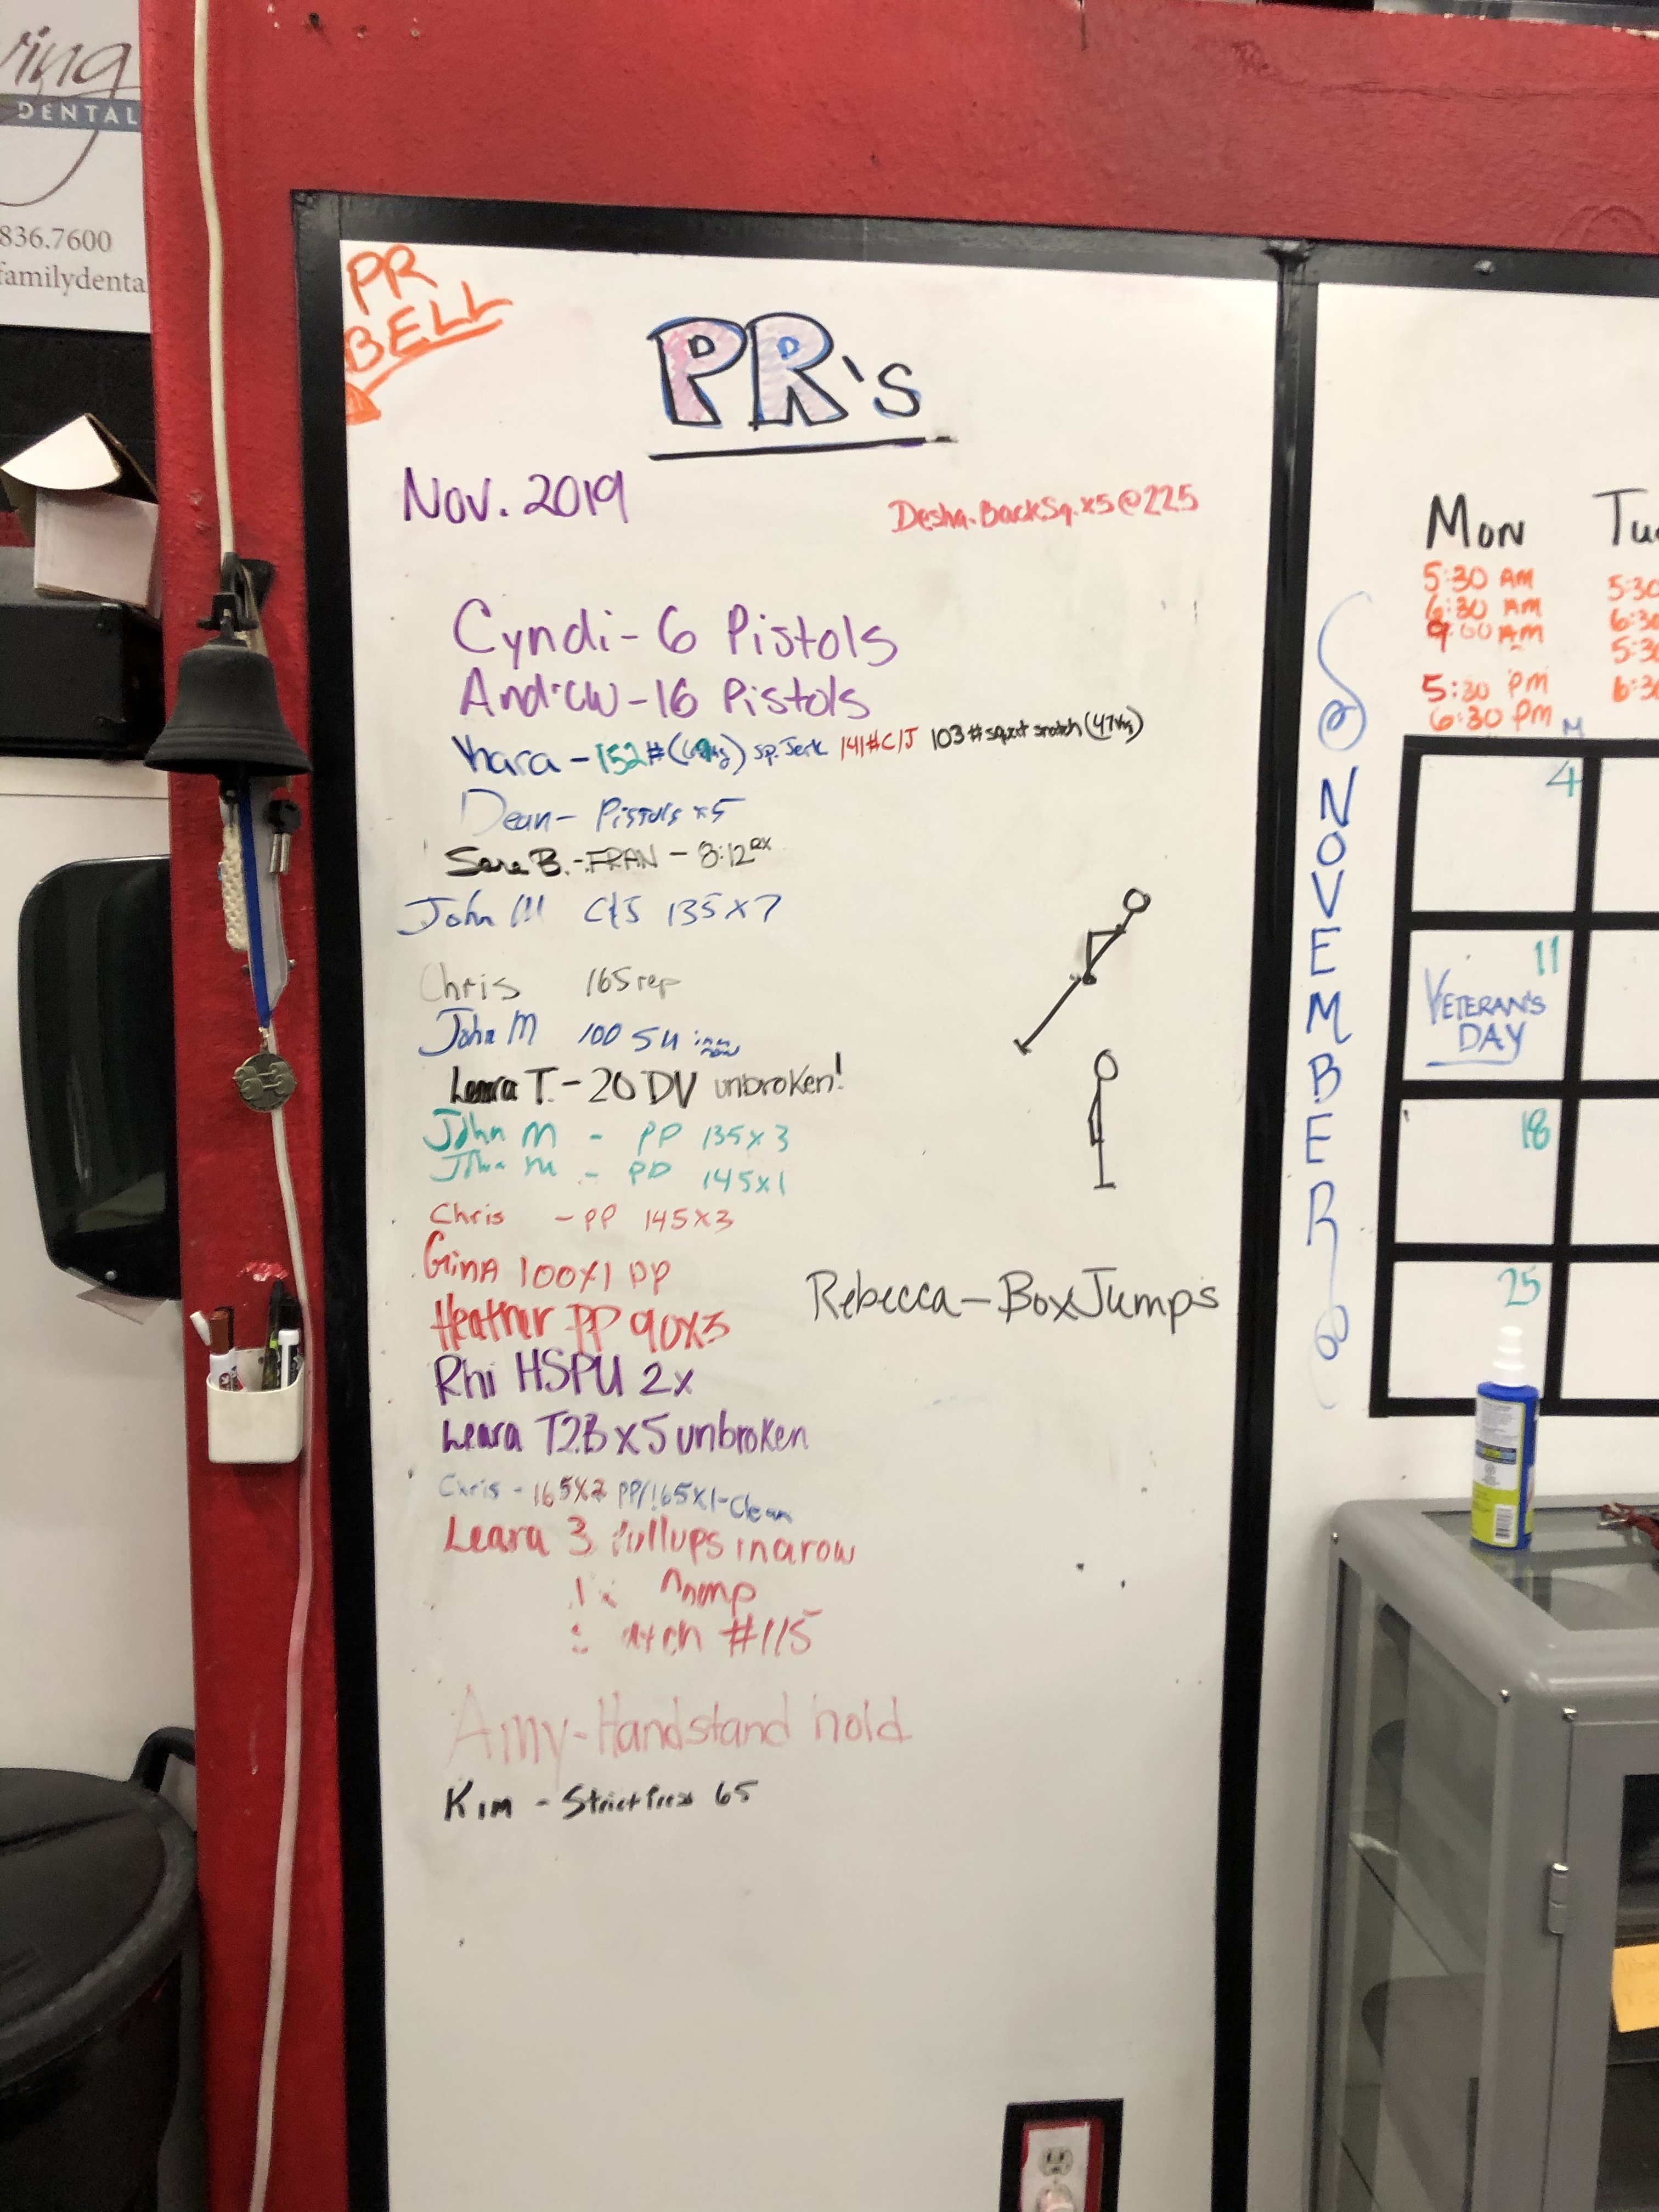 ving
DENTAL
836.7600
familydenta
PR
BELL
PR's
Nov. 2019
Desha. Back Sq. x5 @ 225
Cyndi - 6 Pistols
Andrew - 16 Pistols
Khara - 152# (69kg) sp. Jerk 141# C/J 103# squat snatch (47kg)
Dean - Pistols x5
Sara B. - FRAN - 8:12 RX
John M C&J 135 x 7
Chris 165 rep
John M 100 SU
Leara T. - 20 DV unbroken!
John M - PP 135 x 3
John M - PP 145 x 1
Chris - PP 145 x 3
Gina 100x1 PP
Heather PP 90x3
Rhi HSPU 2x
Leara T2B x 5 unbroken
Chris - 165x2 PP/165x1-Clean
Leara 3 Pullups in a row
#115
Amy - Handstand hold
Kim - Strict Press 65
Rebecca - Box Jumps
NOVEMBER
Mon Tu
5:30 AM 5:30
6:30 AM 6:30
9:00 AM 5:30
5:30 PM 6:30
6:30 PM
M
4
11
VETERAN'S
DAY
18
25